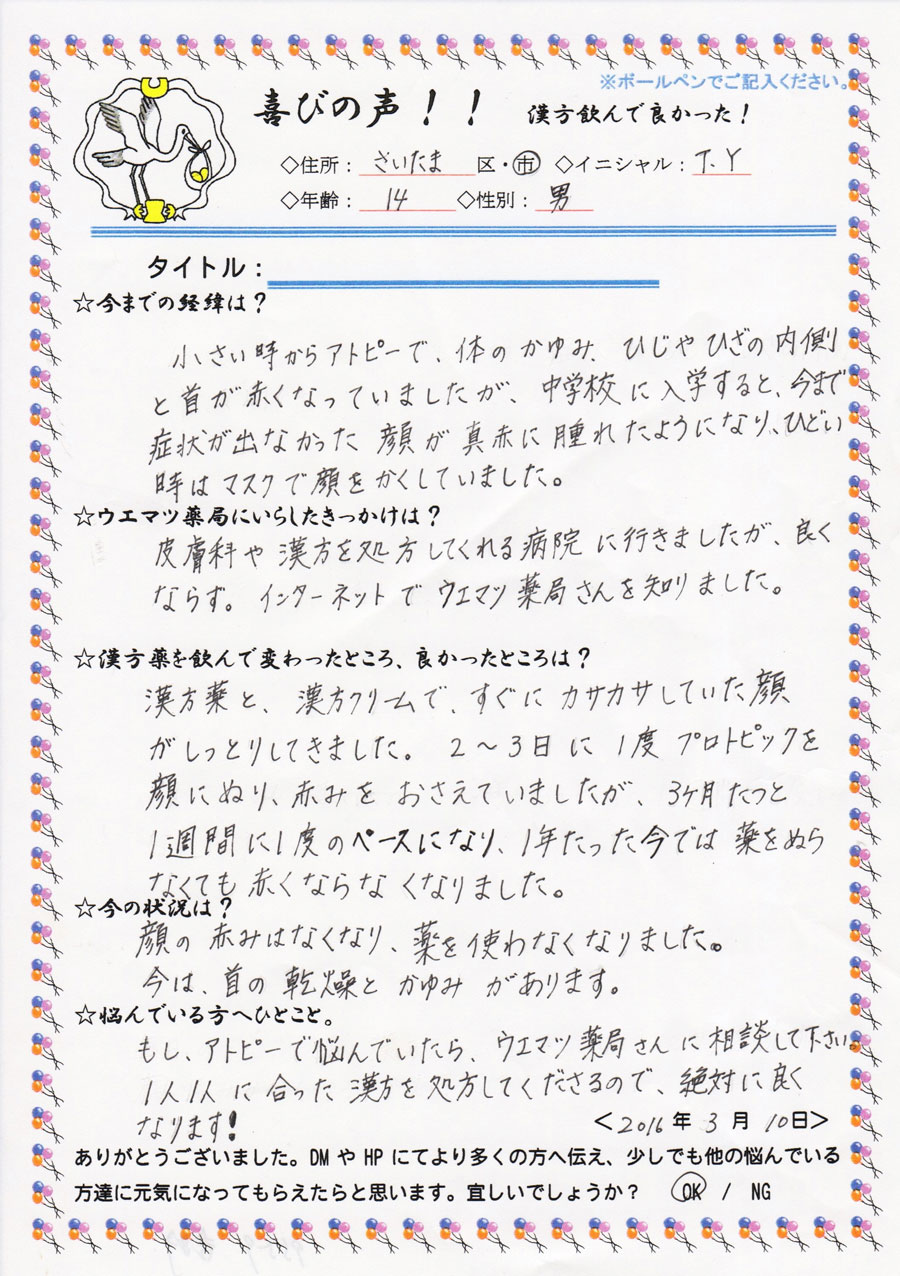 ※ボールペンでご記入ください。
喜びの声！！ 漢方飲んで良かった！
◇住所： さいたま 区・市 ◇イニシャル：T.Y
◇年齢： 14 ◇性別： 男
タイトル：
☆今までの経緯は？
小さい時からアトピーで、体のかゆみ、ひじやひざの内側
と首が赤くなっていましたが、中学校に入学すると、今まで
症状が出なかった顔が真赤に腫れたようになり、ひどい
時はマスクで顔をかくしていました。
☆ウエマツ薬局にいらしたきっかけは？
皮膚科や漢方を処方してくれる病院に行きましたが、良く
ならず。インターネットでウエマツ薬局さんを知りました。
☆漢方薬を飲んで変わったところ、良かったところは？
漢方薬と、漢方クリームで、すぐにカサカサしていた顔
がしっとりしてきました。2～3日に1度プロトピックを
顔にぬり、赤みをおさえていましたが、3ヶ月たつと
1週間に1度のペースになり、1年たった今では薬をぬら
なくても赤くならなくなりました。
☆今の状況は？
顔の赤みはなくなり、薬を使わなくなりました。
今は、首の乾燥とかゆみがあります。
☆悩んでいる方へひとこと。
もし、アトピーで悩んでいたら、ウエマツ薬局さんに相談して下さい。
1人1人に合った漢方を処方してくださるので、絶対に良く
なります!
＜2016年3月10日＞
ありがとうございました。DMやHPにてより多くの方へ伝え、少しでも他の悩んでいる
方達に元気になってもらえたらと思います。宜しいでしょうか？ OK / NG